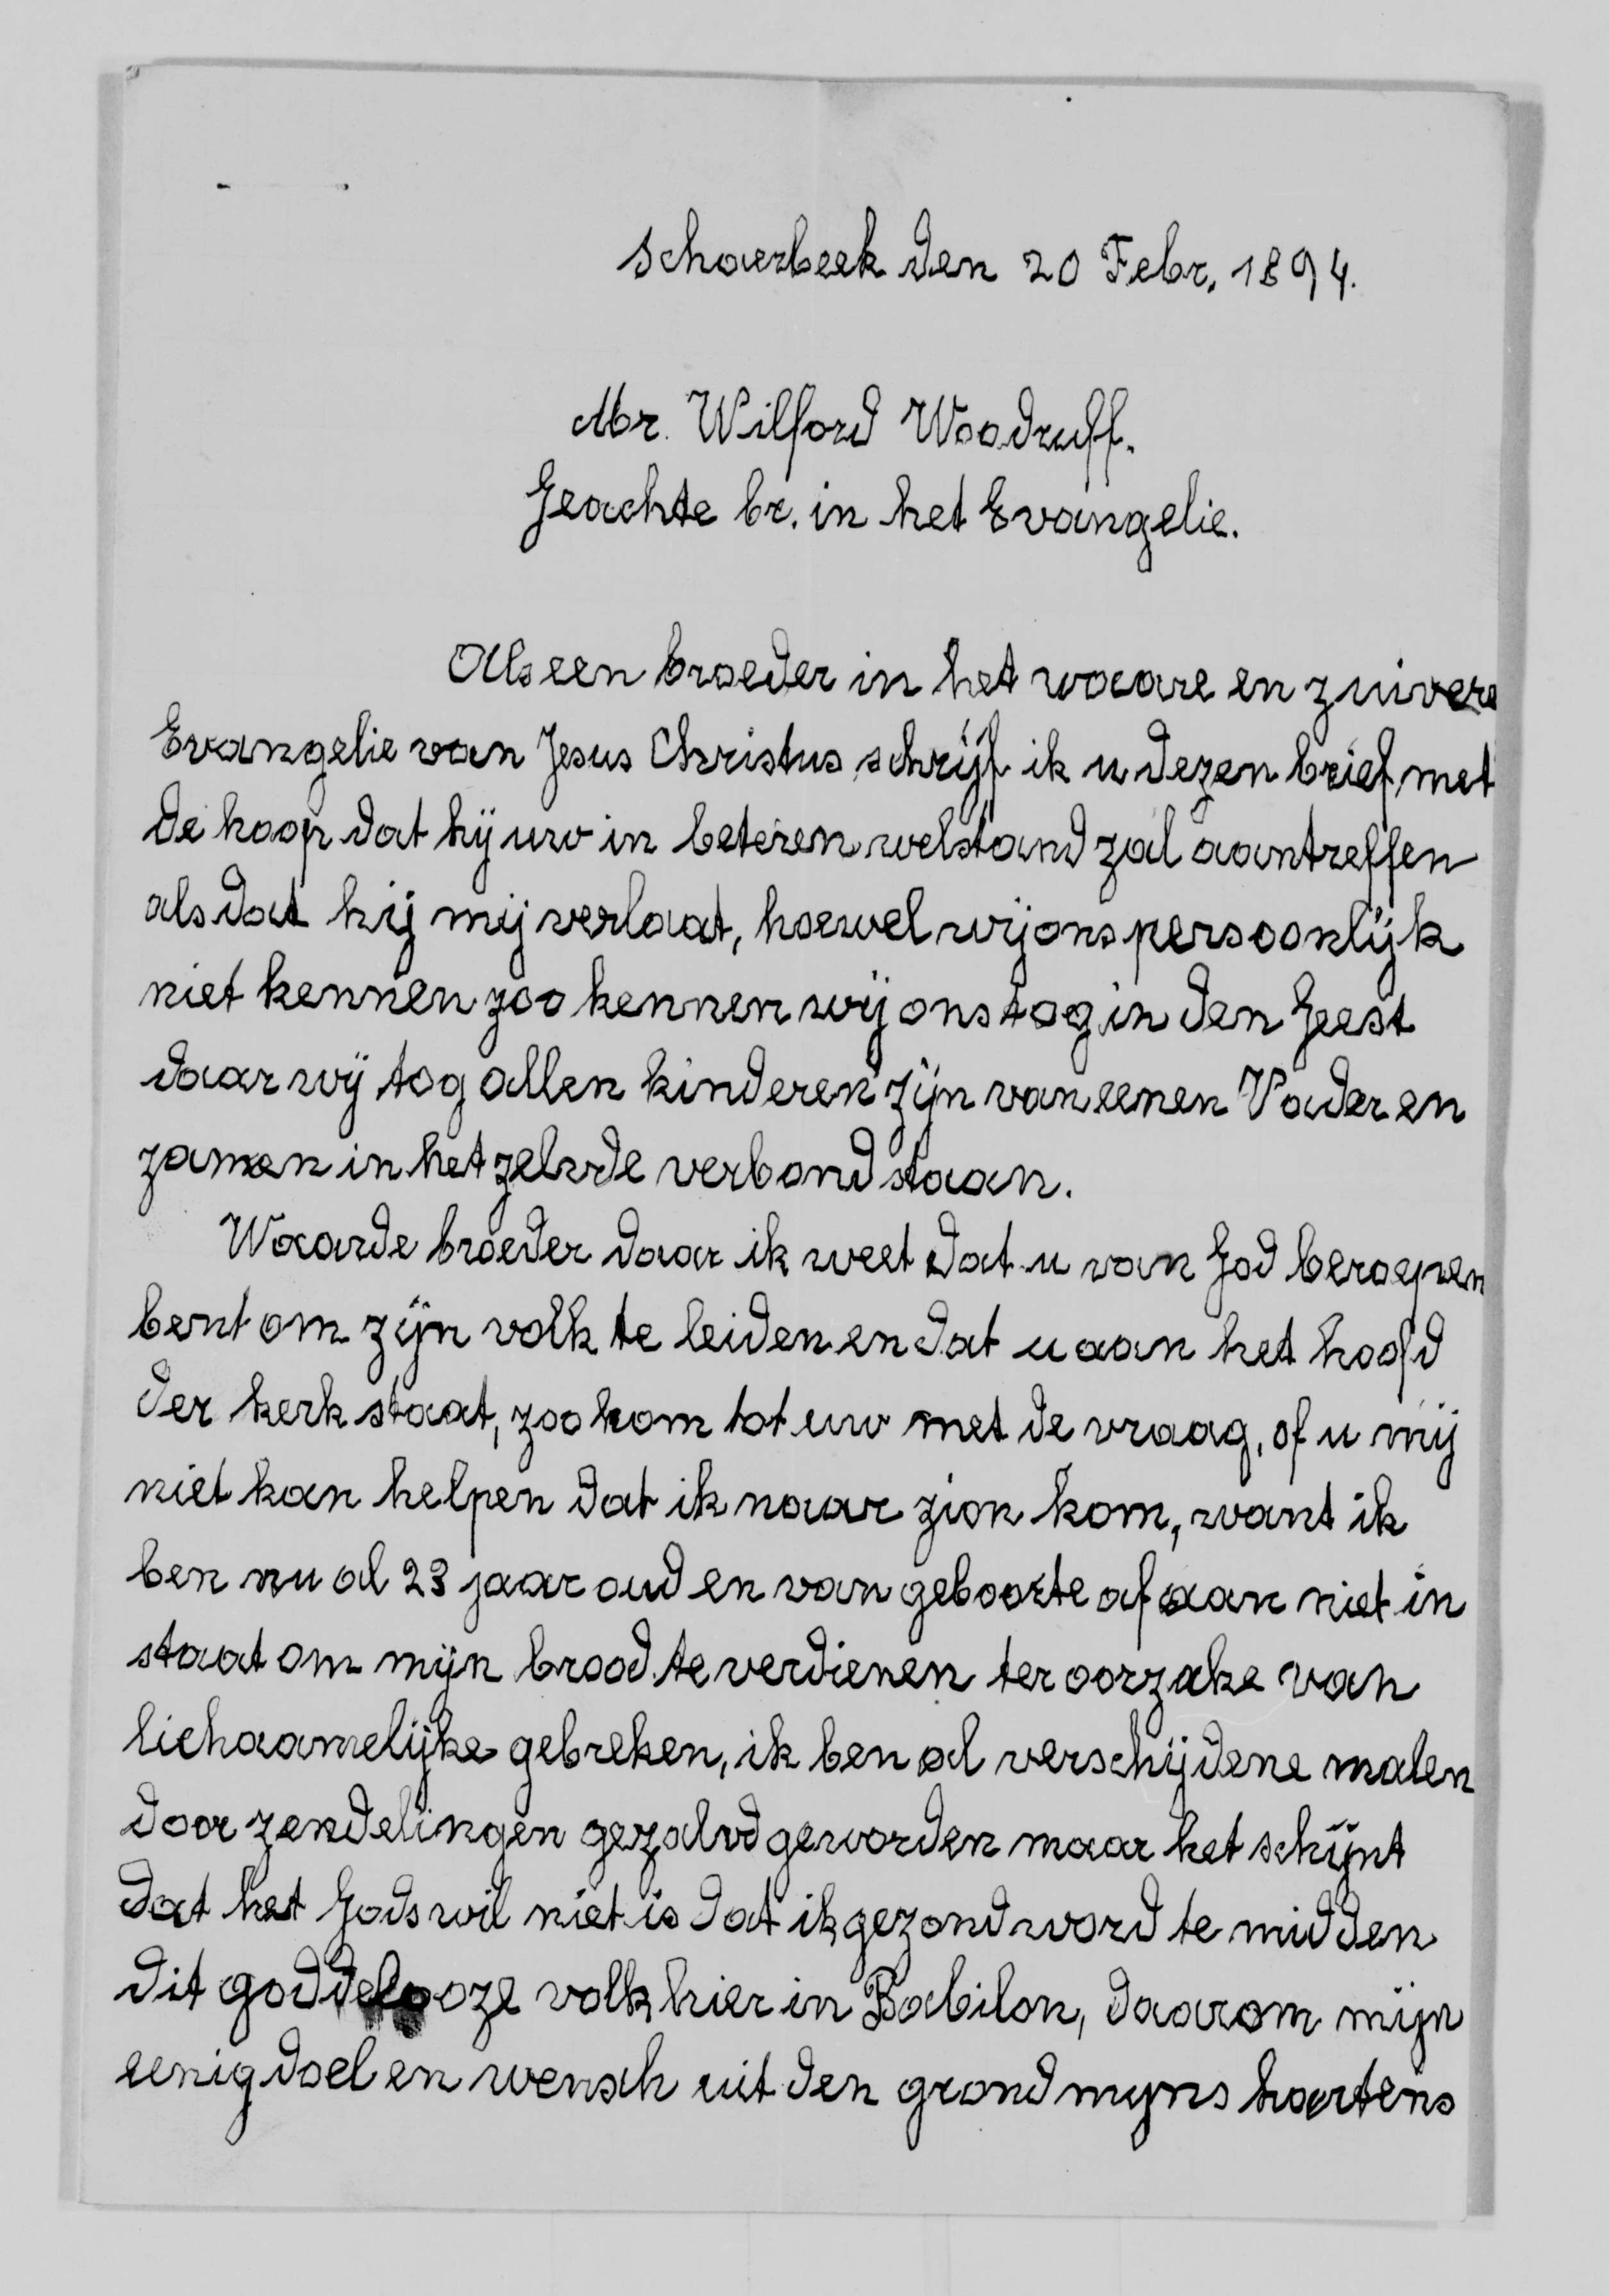 Schaerbeek den 20 Febr. 1894.
Mr. Wilford Woodruff.
Geachte br. in het Evangelie.
Als een broeder in het waare en zuivere
Evangelie van Jesus Christus schrijf ik u dezen brief met
de hoop dat hij uw in beteren welstand zal aantreffen
als dat hij mij verlaat, hoewel wij ons persoonlijk
niet kennen zoo kennen wij ons tog in den Geest
daar wij tog allen kinderen zijn van eenen Vader en
zamen in het zelvde verbond staan.
Waarde broeder daar ik weet dat u van God beroepen
bent om zijn volk te leiden en dat u aan het hoofd
der kerk staat, zoo kom tot uw met de vraag, of u mij
niet kan helpen dat ik naar zion kom, want ik
ben nu al 23 jaar oud en van geboorte af aan niet in
staat om mijn brood te verdienen ter oorzake van
lichaamelijke gebreken, ik ben al verschijdene malen
door zendelingen gezalvd geworden maar het schijnt
dat het Gods wil niet is dat ik gezond word te midden
dit goddelooze volk hier in Babilon, daarom mijn
eenig doel en wensch uit den grond myns hartens